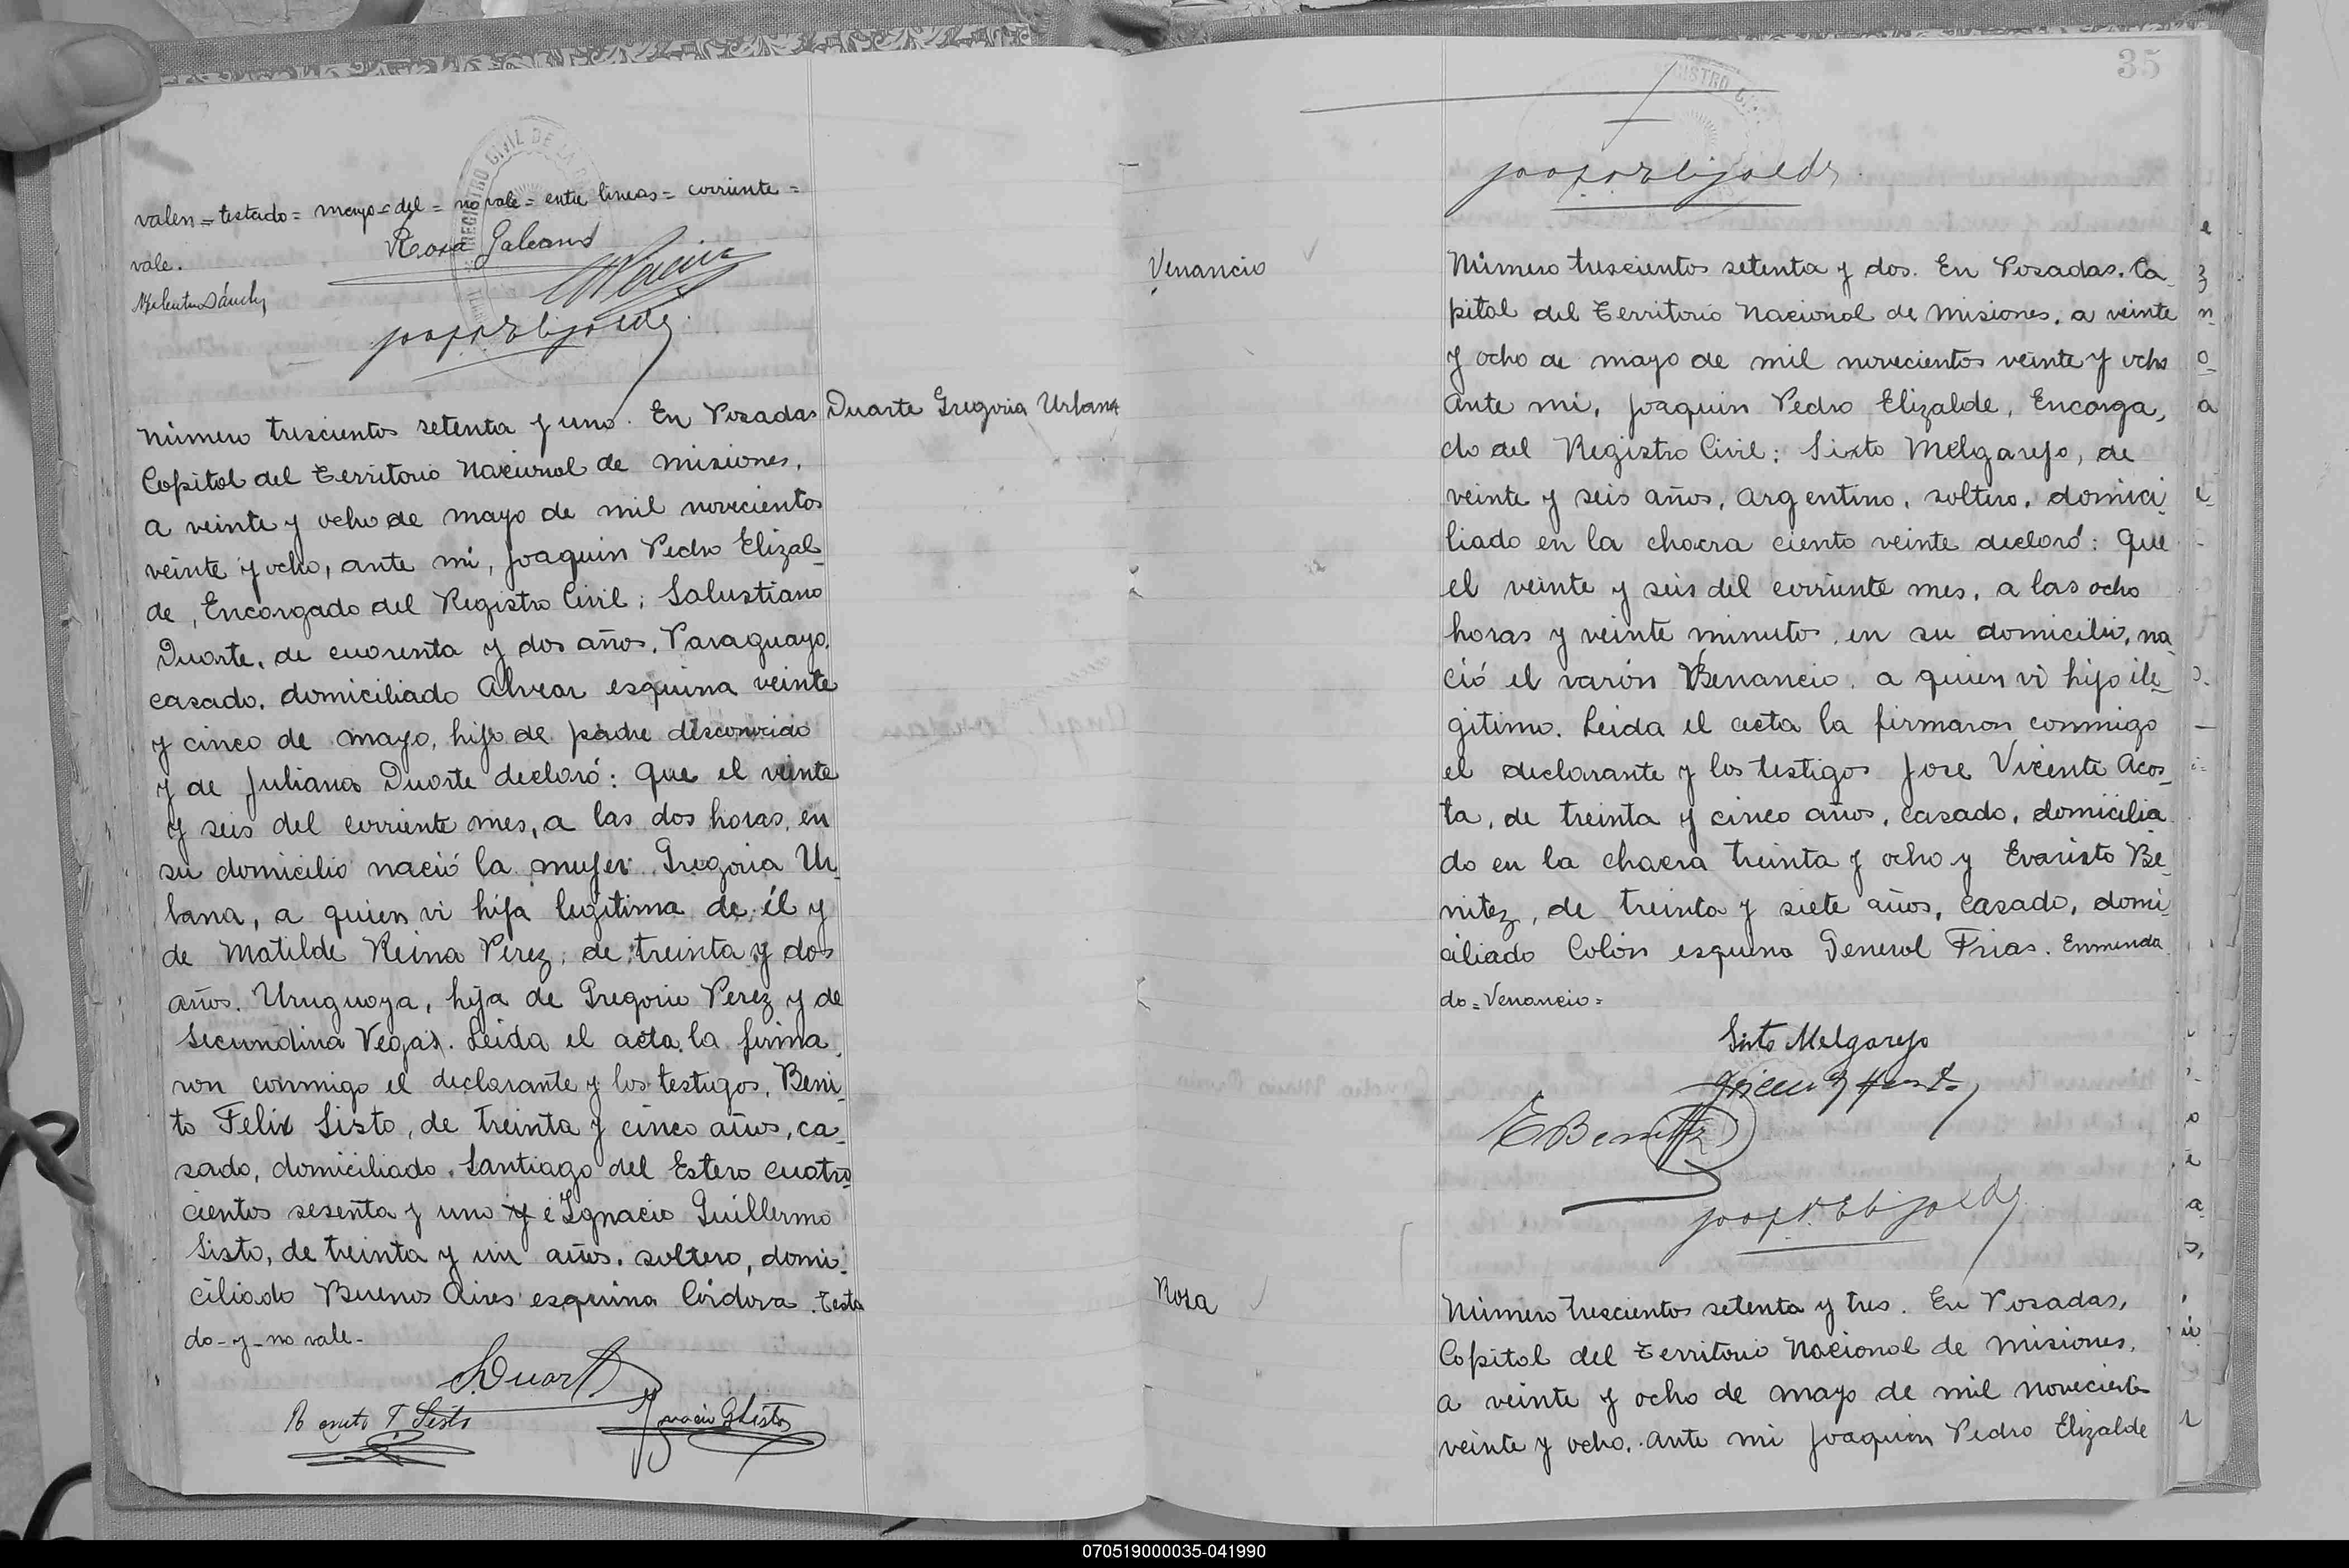 valen = testado = mayo = del = no vale = entre lineas = corriente =
vale.
Rosa Galeano
Número trescientos setenta y uno. En Posadas
Duarte Gregoria Urbana
Capital del Territorio Nacional de Misiones,
a veinte y ocho de mayo de mil novecientos
veinte y ocho, ante mi, Joaquin Pedro Elizal-
de, Encargado del Registro Civil; Salustiano
Duarte, de cuarenta y dos años, Paraguayo,
casado, domiciliado Alvear esquina veinte
y cinco de mayo, hijo de padre desconocido
y de Juliana Duarte declaró: Que el veinte
y seis del corriente mes, a las dos horas, en
su domicilio nació la mujer Gregoria Ur-
bana, a quien vi hija legitima de él y
de Matilde Reina Perez, de treinta y dos
años, Uruguaya, hija de Gregorio Perez y de
Secundina Vegas. Leida el acta la firma-
ron conmigo el declarante y los testigos, Beni-
to Felix Sisto, de treinta y cinco años, ca-
sado, domiciliado Santiago del Estero cuatro-
cientos sesenta y uno y é Ignacio Guillermo
Sisto, de treinta y un años, soltero, domi-
ciliado Buenos Aires esquina Córdova. Testa
do - y - no vale -
S. Duarte
Benito F. Sisto
Ignacio G. Sisto
35
Venancio
Número trescientos setenta y dos. En Posadas, Ca-
pital del Territorio Nacional de Misiones, a veinte
y ocho de mayo de mil novecientos veinte y ocho
ante mi, Joaquin Pedro Elizalde, Encarga-
do del Registro Civil: Sixto Melgarejo, de
veinte y seis años, argentino, soltero, domici-
liado en la chacra ciento veinte declaró: Que
el veinte y seis del corriente mes, a las ocho
horas y veinte minutos, en su domicilio, na-
ció el varón Venancio, a quien vi hijo ile-
gitimo. Leida el acta la firmaron conmigo
el declarante y los testigos Jose Vicente Acos-
ta, de treinta y cinco años, casado, domicilia-
do en la chacra treinta y ocho y Evaristo Be-
nitez, de treinta y siete años, casado, domi-
ciliado Colón esquina General Frias. Enmenda
do = Venancio =
Sisto Melgarejo
E Benitez
Rosa
Número trescientos setenta y tres. En Posadas,
Capital del Territorio Nacional de Misiones,
a veinte y ocho de mayo de mil novecientos
veinte y ocho. ante mi Joaquin Pedro Elizalde
070519000035-041990